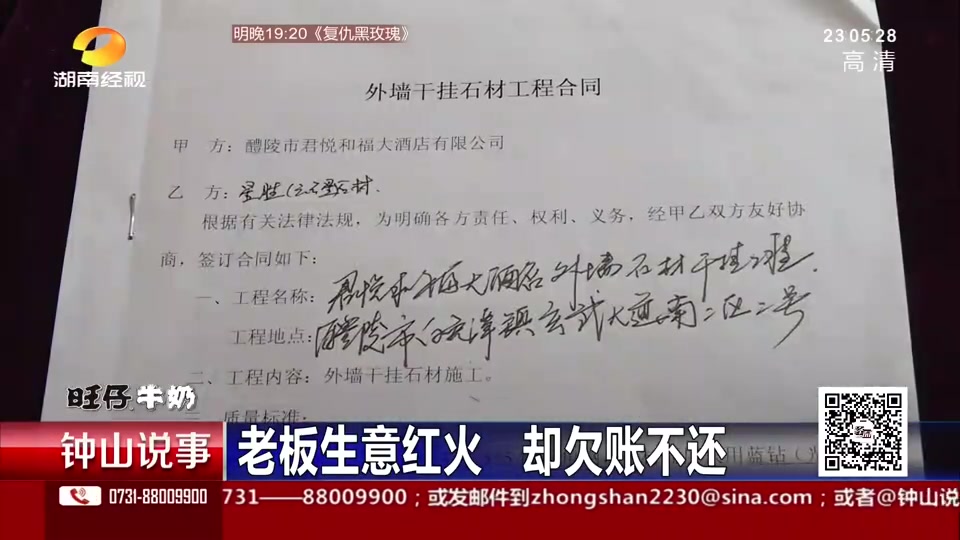 明晚19:20《复仇黑玫瑰》
23 05 28
高清
湖南经视
外墙干挂石材工程合同
甲 方：醴陵市君悦和福大酒店有限公司
乙 方：
根据有关法律法规，为明确各方责任、权利、义务，经甲乙双方友好协
商，签订合同如下：
一、工程名称：君悦和福大酒店外墙石材干挂工程.
工程地点：醴陵市 大道南二区二号
二、工程内容：外墙干挂石材施工。
三、质量标准：
用蓝钻
旺仔牛奶
钟山说事
老板生意红火 却欠账不还
0731-88009900
——88009900；或发邮件到zhongshan2230@sina.com；或者@钟山说